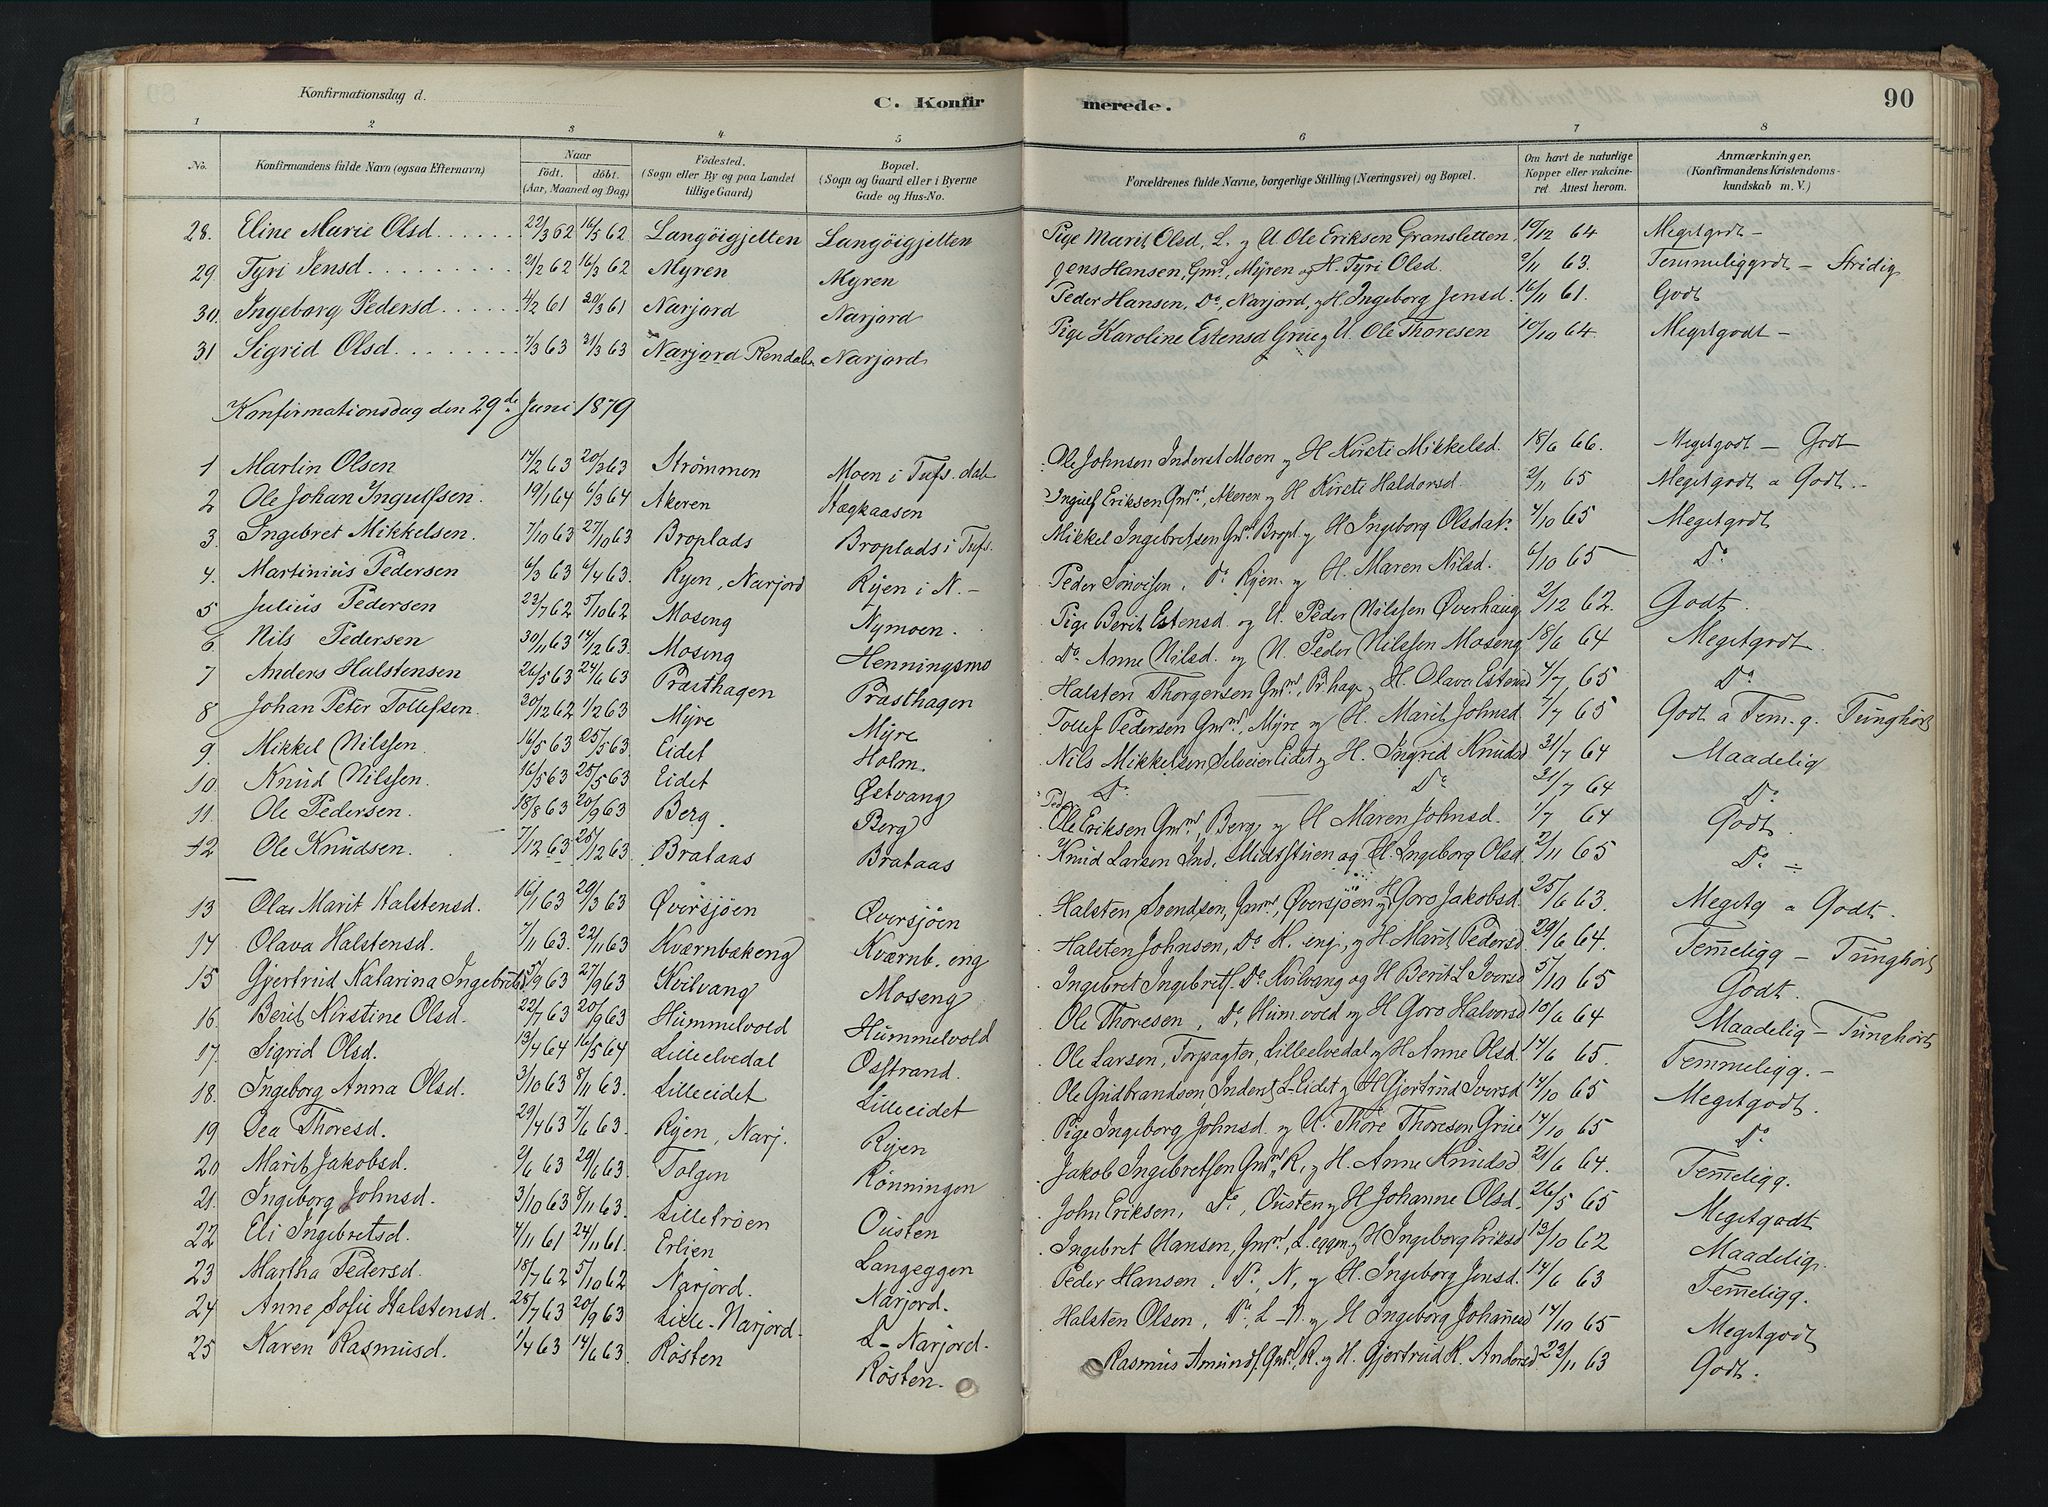 Konfirmationsdag d.
C. Konfirmerede.
90
1 2 3 4 5 6 7 8
No. Konfirmandens fulde Navn (ogsaa Efternavn) Naar født. døbt. (Aar, Maaned og Dag) Födested. (Sogn eller By og paa Landet tillige Gaard) Bopæl. (Sogn og Gaard eller i Byerne Gade og Hus-No. Forældrenes fulde Navne, borgerlige Stilling (Næringsvei) og Bopæl. Om havt de naturlige Kopper eller vakcineret. Attest herom. Anmærkninger. (Konfirmandens Kristendomskundskab m. V.)
28. Eline Marie Olsd. 22/3 62 16/5 62 Langöigjelten Langöigjelten Pige Marit Olsd, L. og U. Ole Eriksen Gransletten 19/12 64 Megetgodt -
29. Tyri Jensd. 21/2 62 16/3 62 Myren Myren Jens Hansen, Gmd, Myren og H. Tyri Olsd. 9/11 63. Temmeliggodt - Stridig
30. Ingeborg Pedersd 4/2 61 20/3 61 Narjord Narjord Peder Hansen, Do, Narjord, og H. Ingeborg Jensd. 16/11 61. Godt
31 Sigrid Olsd. 7/3 63 31/3 63 Narjord Rendalen Narjord Pige Karoline Estensd Grue og U. Ole Thoresen 10/10 64. Megetgodt -
Konfirmationsdag den 29de Juni 1879
1 Martin Olsen 17/2 63 20/3 63 Strømmen Moen i Tufs. dal Ole Johnsen Inderst Moen og H. Kirsti Mikkelsd. 18/6 66. Megetgodt - Godt
2 Ole Johan Ingulfsen. 19/1 64 6/3 64 Akeren Hægkaasen Ingulf Eriksen Gmd, Akeren og H. Kirsti Haldorsd. 2/11 65 Megetgodt a Godt. -
3. Ingebret Mikkelsen. 7/10 63 27/10 63 Broplads Broplads i Tufs. Mikkel Ingebretsen Gmd. Bropl. og H Ingeborg Olsdatr. 4/10 65 Megetgodt
4. Martinius Pedersen 6/3 63 6/4 63. Ryen, Narjord Ryen i N. - Peder Simensen, Do Ryen og H. Maren Nilsd. 6/10 65 Do
5 Julius Pedersen 23/7 62 5/10 62 Moseng Nymoen. Pige Berit Estensd. og U. Peder Nilssen Øverhaug 2/12 62. Godt.
6 Nils Pedersen 30/11 63 14/12 63. Moseng Henningsmo Do. Anne Nilsd. og U. Peder Nilssen Moseng 18/6 64 Megetgodt.
7 Anders Halstensen 26/5 63 24/6 63 Præsthagen Præsthagen Halsten Thorgersen Gmd, Pr. hage og H. Olava Estensd 4/7 65 Do
8 Johan Peter Tollefsen 20/12 62 1/2 63 Myre Myre Tollef Pedersen Gmd, Myre og H. Marit Johnsd. 2/7 65 Godt a Tem. g. Tunghørt
9. Mikkel Nilssen. 16/5 63 25/5 63 Eidet Holm. Nils Mikkelsen Selveier Eidet og H. Ingrid Knudsd 31/7 64 Maadelig
10. Knud Nilssen. 16/5 63 25/5 63 Eidet Østvang Do. Do 31/7 64 Do
11. Ole Pedersen. 18/8 63 20/9 63 Berg. Berg Peder Ole Eriksen Gmd, Berg og H Maren Johnsd. 1/7 64 Godt.
12 Ole Knudsen. 7/12 63 25/12 63 Brataas Brataas Knud Larsen Ind, Midtstuen og H. Ingeborg Olsd. 2/11 65 Do -
13 Olas Marit Halstensd. 16/1 63 29/3 63 Øversjöen Øversjöen Halsten Svendsen, Gmd, Øversjöen og H Goro Jakobsd. 25/6 63. Megetg a Godt.
14 Olava Halstensd. 7/11 63. 22/11 63 Kværnbækeng Kværnb. eng Halsten Johnsen, Do K. eng, og H. Marit Pedersd 29/6 64. Temeligg - Tunghørt
15 Gjertrud Katarina Ingebretsd 5/9 63 27/9 63 Kvilvang Moseng Ingebret Ingebrets. Do Kvilvang og H Berit L Iversd 5/10 65 Godt.
16. Berit Kirstine Olsd. 22/7 63 20/9 63 Hummelvold Hummelvold Ole Thoresen, Do, Hum. vold og H Goro Halvorsd 13/6 64 Maadelig - Tunghørt
17. Sigrid Olsd. 13/4 64 16/5 64 Lilleelvedal Osstrand. Ole Larsen, Torpagter, Lilleelvedal og H Anne Olsd. 14/6 65. Temmeligg. -
18. Ingeborg Anna Olsd. 3/10 63 8/11 63. Lilleeidet Lilleeidet Ole Gudbrandsen, Inderst L-Eidet og H Gjertrud Iversd 14/10 65 Megetgodt.
19 Sea Thoresd. 29/4 63 7/6 63. Ryen, Narj. Ryen Pige Ingeborg Johnsd. og U. Thore Thoresen Grue 14/10 65 Do
20 Marit Jakobsd. 2/6 63 29/6 63. Tolgen Rönningen Jakob Ingebretsen Gmd R, og H. Anne Knudsd 21/6 64. Temeligg.
21. Ingeborg Johnsd. 3/10 63 8/11 63. Lilletröen Ousten John Eriksen, Do, Ousten og H Johanne Olsd. 26/5 65 Megetgodt
22 Eli Ingebretsd. 4/11 61 24/11 61. Erlien Langeggen Ingebret Hansen, Gmd, L. eggen og H Ingeborg Eriksd 13/10 62 Maadelig.
23 Martha Pedersd. 18/7 62 5/10 62 Narjord. Narjord. Peder Hansen, Do, N, og H. Ingeborg Jensd. 14/6 63 Temeligg.
24 Anne Sofie Halstensd. 28/7 63 20/9 63 Lille-Narjord L-Narjord. Halsten Olsen, Do, L-N. og H Ingeborg Johansd 14/10 65 Megetgodt
25 Karen Rasmusd. 1/4 63 14/6 63. Rösten Rösten. Rasmus Amunds. Gmd, R. og H. Gjertrud K. Andersd. 23/11 63 Godt.